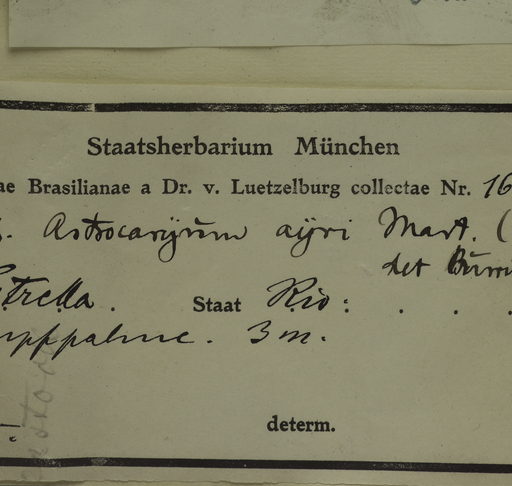 Staatsherbarium München
ae Brasilianae a Dr. v. Luetzelburg collectae Nr. 16
Astrocaryum ayri Mart. (
det Burr
trella. Staat Rio: . . .
mpfpalme. 3 m.
determ.